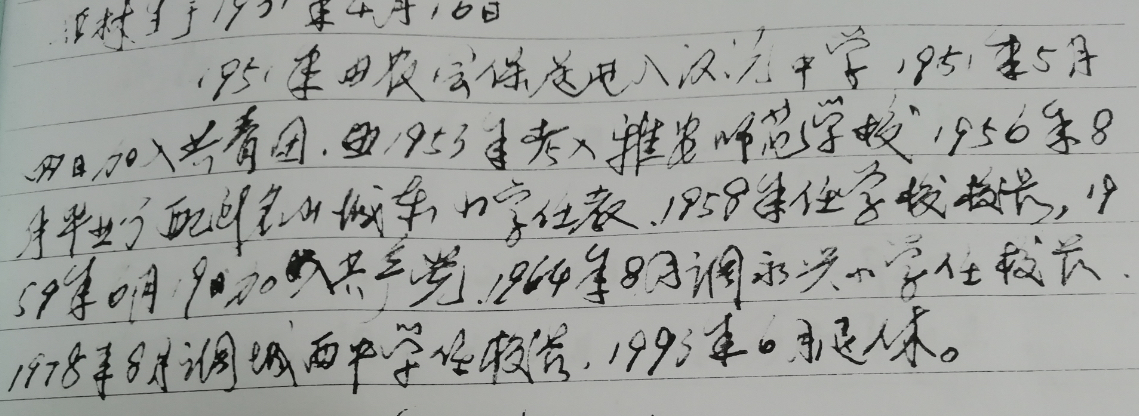 林生于1931年4月16日
1951年由农会保送进入汉源中学1951年5月
四日加入共青团.由1953年考入雅安师范学校1956年8
月毕业分配到名山城东小学任教.1958年任学校校长,19
59年6月19日加入共产党.1964年8月调永兴小学任校长.
1978年8月调城西中学任校长.1993年6月退休。